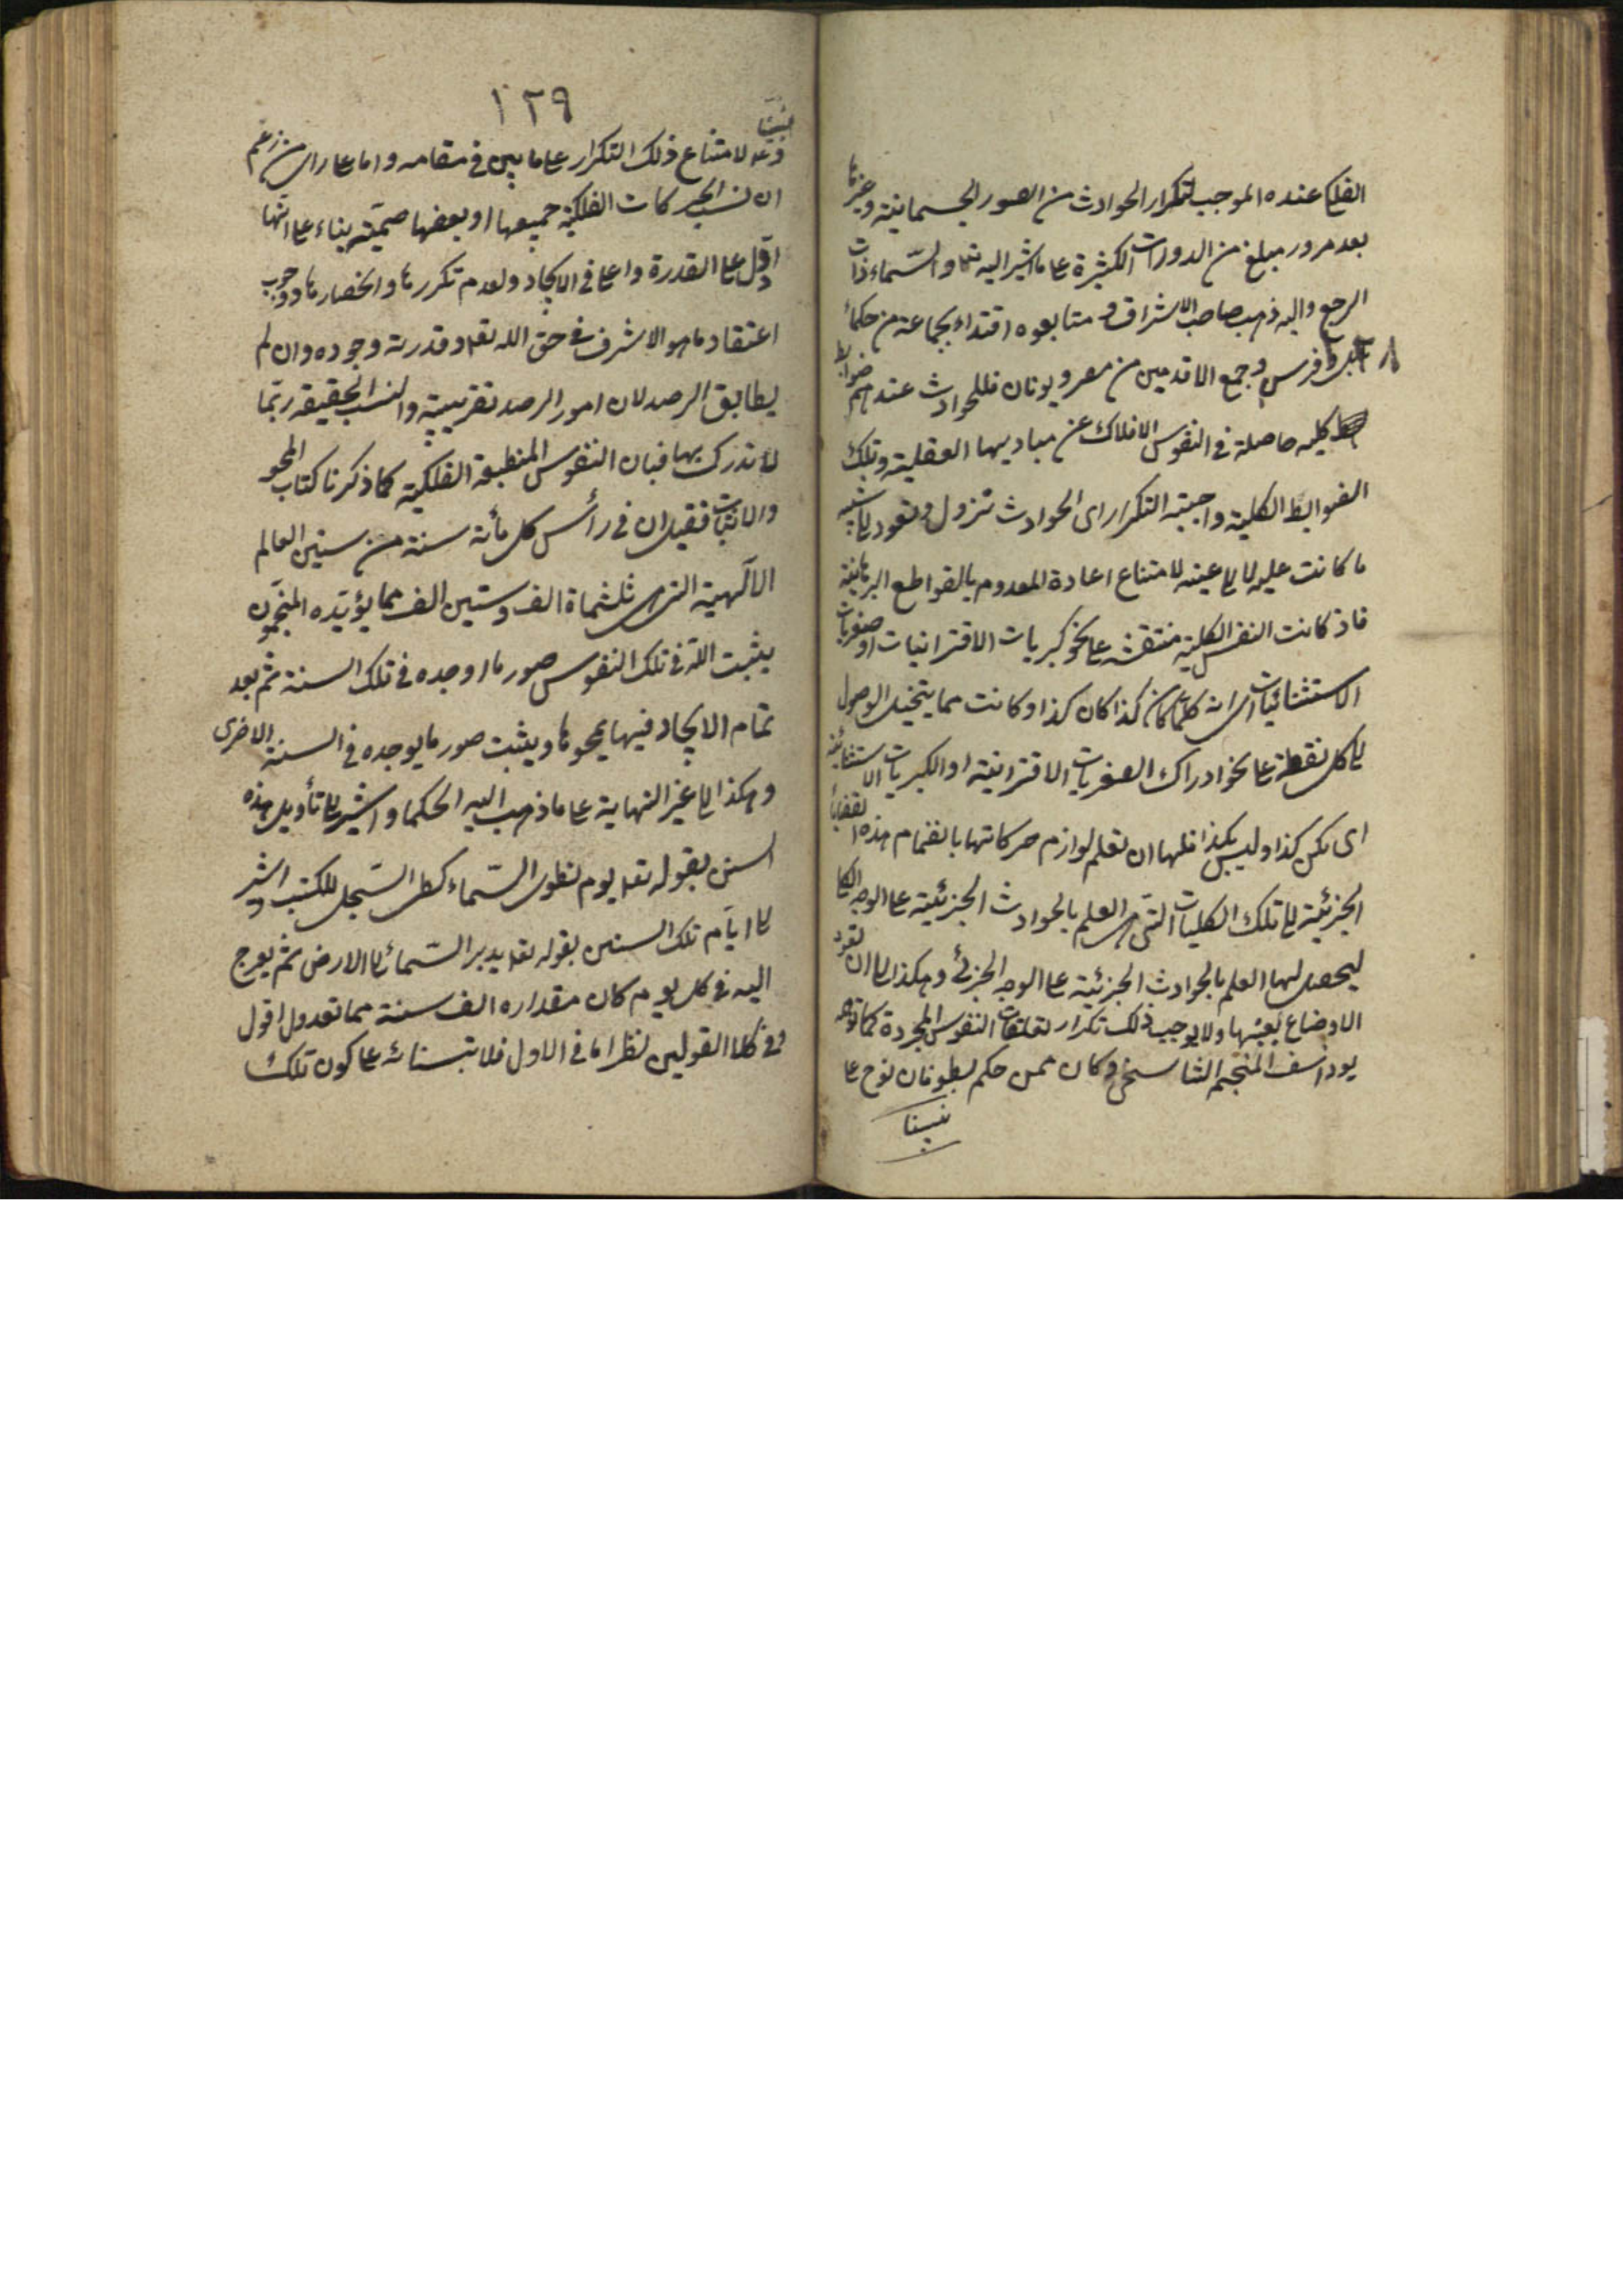 الفلكى عنده الموجب لتكرار الحوادث من الصور الجسمانية وغيرها
بعد مرور مبلغ من الدورات الكثيرة على ما اشير اليه والسّماء ذات
الرجع واليه ذهب صاحب الاشراق و متابعوه اقتداء بجماعة من حكماء
فرس و جمع الاقدمين من مصر و يونان فللحوادث عندهم ضوابط
كليه حاصلة فى النفوس الافلاك عن مباديها العقلية وتلك
الضوابط الكلية واجبة التكرار اى الحوادث تزول وتعود الى شبيه
ما كانت عليه لا الى عينه لامتناع اعادة المعدوم بالقواطع البرهانية
فاذ كانت النفس الكلية منتقشة على نحو كبريات الاقترانيات او صغريات
الاستثنائيات اى انه كلما كان كذا كان كذا وكانت مما يتخيل الوصول
الى كل نقطة على نحو ادراك الصغريات الاقترانية او الكبريات الاستثنائية
اى لكن كذا وليس كذا فلها ان تعلم لوازم حركاتها بانضمام هذه القضايا
الجزئية الى تلك الكليات التى هى العلم بالحوادث الجزئية على الوجه الكلى
ليحصل لها العلم بالحوادث الجزئية على الوجه الجزئى وهكذا الى ان تعود
الاوضاع بعينها ولا يوجب ذلك تكرار تعلقات النفوس المجردة كما توهمه
يوذاسف المنجم التناسخى وكان ممن حكم بطوفان نوح على
نبينا
١٢٩
نبينا
و لامتناع ذلك التكرار على ما بين فى مقامه واما على راى من زعم
ان نسب الحركات الفلكية جميعها او بعضها صمّية بناء على انّها
ادّل على القدرة و فى الايجاد ولعدم تكررها وانحصارها ووجوب
اعتقاد ما هو الاشرف فى حق الله تعـ و قدرته وجوده وان لم
يطابق الرصد لان امور الرصد تقريبية والنسب الحقيقة ربّما
لا تدرك بها فبان النفوس المنطبعة الفلكية كما ذكرنا كتاب المحو
والاثبات فقيل ان فى رأس كل مأة سنة من سنين العالم
الآلهية التى هى ثلثماة الف وستين الف مما يؤيّده المنجّمون
يثبت الله فى تلك النفوس صور ما اوجده فى تلك السنة ثم بعد
تمام الايجاد فيها يمحوها ويثبت صور ما يوجده فى السنة الاخرى
وهكذا الى غير النهاية على ما ذهب اليه الحكما واشير الى تأويل هذه
السنين بقوله تعـ يوم نطوى السّماء كطى السّجل للكتب واشير
الى ايّام تلك السنين بقوله تعـ يدبر السّمائ الى الارض ثم يعرج
اليه فى كل يوم كان مقداره الف سنة مما تعدون اقول
وفى كلا القولين نظر اما فى الاول فلابتنائه على كون تلك